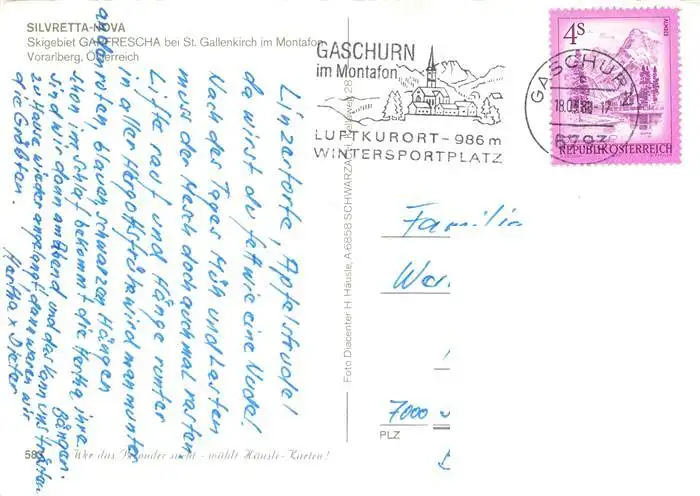 SILVRETTA-NOVA
Skigebiet GARFRESCHA bei St. Gallenkirch im Montafon
Vorarlberg, Österreich
GASCHURN
im Montafon
LUFTKURORT - 986 m
WINTERSPORTPLATZ
GASCHURN
6793
4 S
ALMSEE
REPUBLIK ÖSTERREICH
Linzertorte, Apfelstrudel
da wirst du fett wie eine Nudel.
Nach des Tages Müh und Lasten
muss der Mesch doch auch mal rasten
Lifte rauf und Hänge runter
in aller Hergottsfrühe wird man munter
an den roten, blauen, schwarzen Hängen
schon im Schlaf bekommt die Hertha ihre
Gängen.
sind wir dann am Abend und das kann uns trösten
zu Hause wieder angelangt dann waren wir
die Größten.
Hertha + Dieter
Foto Diacenter H. Häusle, A-6858 SCHWARZACH 28
Familie
7000
PLZ
Wer das Besondere sucht - wählt Häusle-Karten!